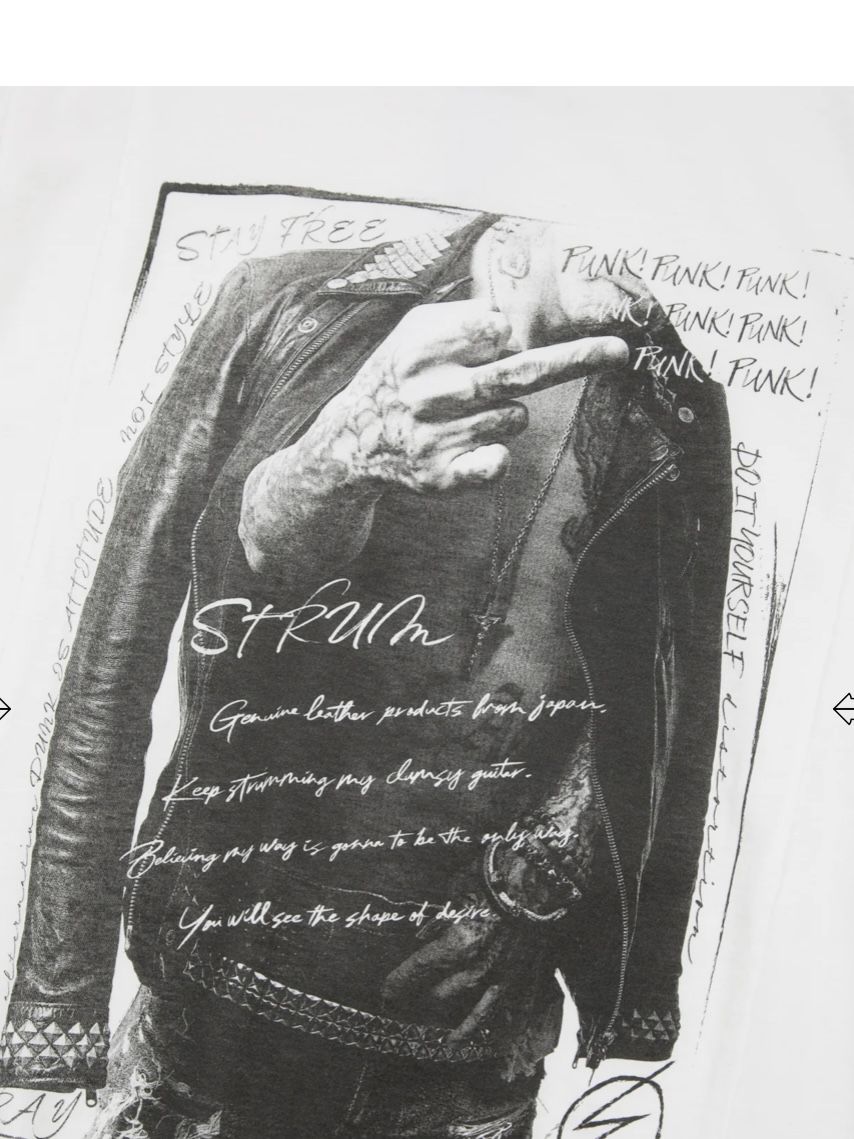 STAY FREE
PUNK! PUNK! PUNK!
PUNK! PUNK!
PUNK! PUNK!
not STYLE
PUNK IS ATTITUDE
DO IT YOURSELF distortion
STRUM
Genuine leather products from japan.
Keep strumming my clumsy guitar.
Believing my way is gonna to be the only way.
You will see the shape of desire.